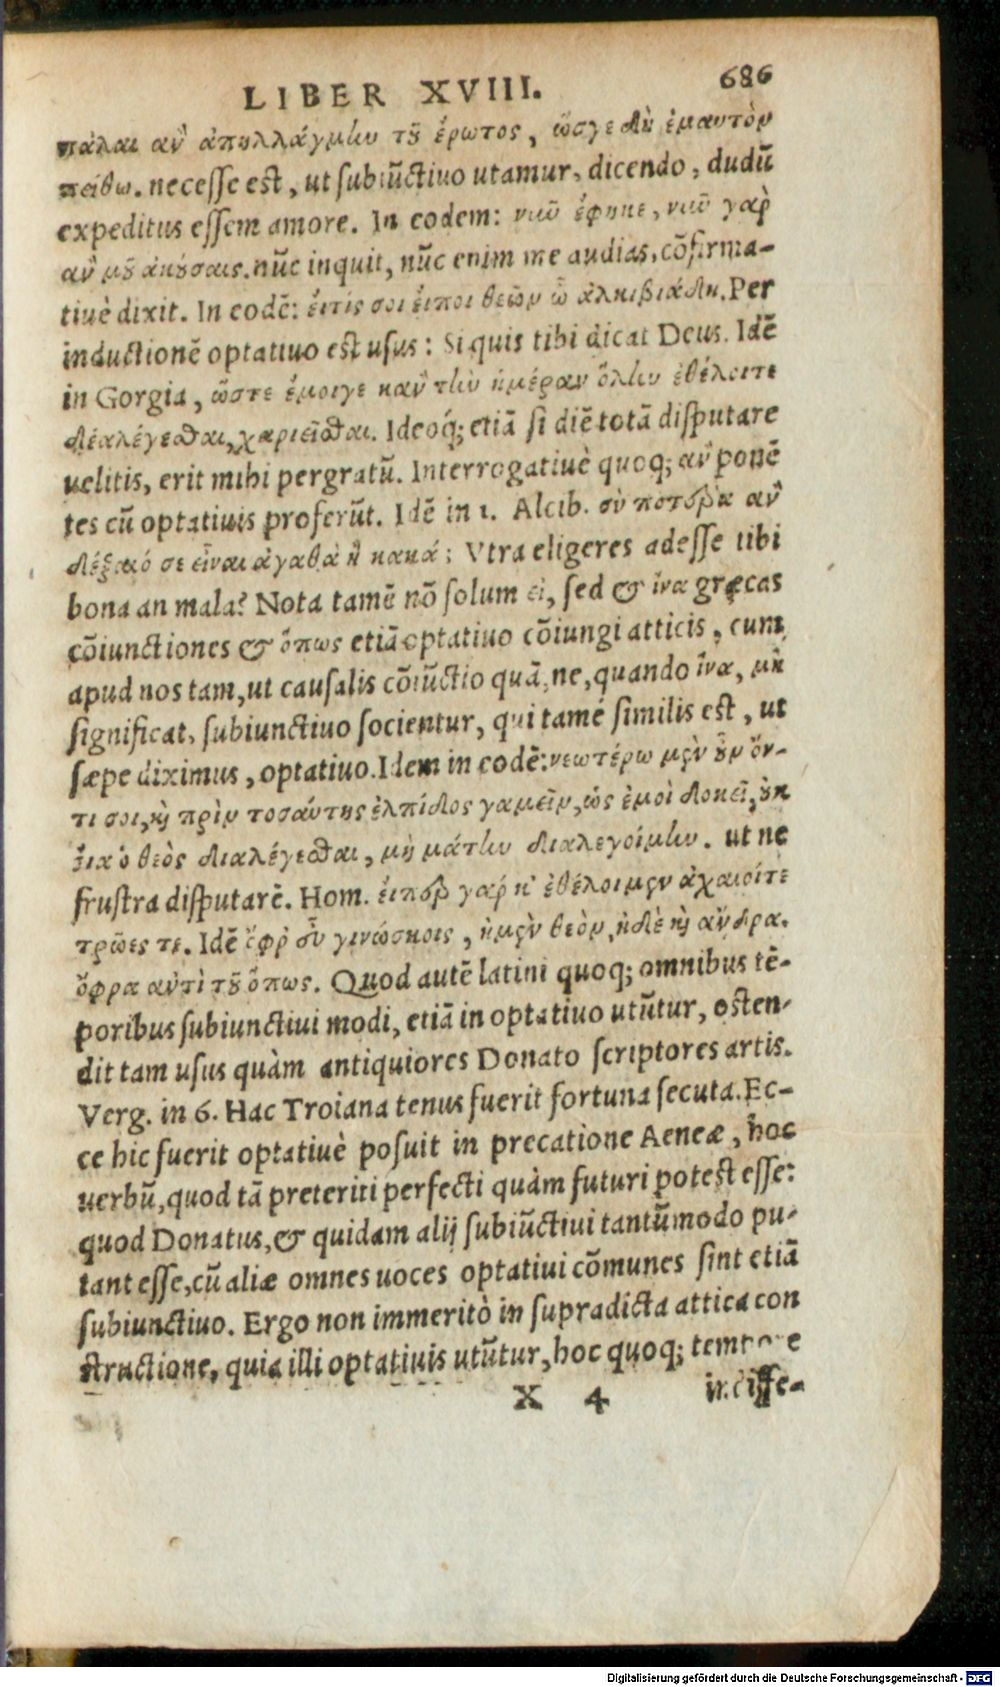 LIBER XVIII. 686
πάλαι ἂν ἀπηλλάγμην τοῦ ἔρωτος, ὥσγε δὴ ἐμαυτὸν
πείθω. necesse est, ut subiūctiuo utamur, dicendo, dudū
expeditus essem amore. In eodem: νιῦ ἔφηκε, νιῦ γαὶρ
ἂν μοῦ ἀκούσαις. nūc inquit, nūc enim me audias, cōfirma-
tiuè dixit. In eodē: εἴτίς σοι εἴποι θεῶν ὦ ἀλκιβιάδη. Per
inductionē optatiuo est usus: Si quis tibi dicat Deus. Idē
in Gorgia, ὥστε ἔμοιγε κἂν τὴν ἡμέραν ὅλην ἐθέλοιτε
διαλέγεσθαι, χαριεῖσθαι. Ideoq́; etiā si diē totā disputare
uelitis, erit mihi pergratū. Interrogatiuè quoq; ἂν ponē
tes cū optatiuis proferūt. Idē in 1. Alcib. σὺ πότερα ἂν
δέξαιό σε εἶναι ἀγαθὰ ἢ κακά; Vtra eligeres adesse tibi
bona an mala? Nota tamē nō solum εἰ, sed & ἵνα græcas
cōiunctiones & ὅπως etiā optatiuo cōiungi atticis, cum
apud nos tam, ut causalis cōiūctio quā, ne, quando ἵνα, μὴ
significat, subiunctiuo socientur, qui tamē similis est, ut
sæpe diximus, optatiuo. Idem in eodē: νεωτέρω μὲν οὖν ὄν-
τι σοι, καὶ πρὶν τοσαύτης ἐλπίδος γαμεῖν, ὡς ἐμοὶ δοκεῖ, οὐκ
εἴα ὁ θεὸς διαλέγεσθαι, μὴ μάτην διαλεγοίμην. ut ne
frustra disputarē. Hom. εἴπερ γαρ κ' ἐθέλοιμεν ἀχαιοίτε
τρῶες τε. Idē ὄφρ' οὖ γινώσκοις, ἠμὲν θεὸν, ἠδὲ καὶ ἄνδρα.
ὄφρα ἀντὶ τοῦ ὅπως. Quod autē latini quoq; omnibus tē-
poribus subiunctiui modi, etiā in optatiuo utūtur, osten-
dit tam usus quàm antiquiores Donato scriptores artis.
Verg. in 6. Hac Troiana tenus fuerit fortuna secuta. Ec-
ce hic fuerit optatiuè posuit in precatione Aeneæ, hoc
uerbū, quod tā preteriti perfecti quàm futuri potest esse:
quod Donatus, & quidam alij subiūctiui tantūmodo pu-
tant esse, cū aliæ omnes uoces optatiui cōmunes sint etiā
subiunctiuo. Ergo non immeritò in supradicta attica con
structione, quia illi optatiuis utūtur, hoc quoq; tempore
X 4 indiffe-
Digitalisierung gefördert durch die Deutsche Forschungsgemeinschaft - DFG